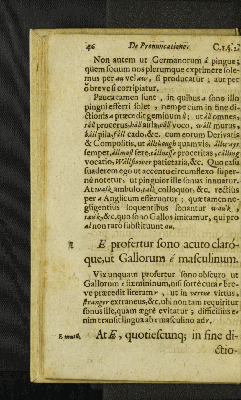 46 De Pronuntiatione. C.1.§.2.
Non autem ut Germanorum á pingue;
quem sonum nos plerumque exprimere sole-
mus per au vel aw, si producatur; aut per
ò breve si corripiatur.
Pauca tamen sunt, in quibus a sono illo
pingui efferri solet, nempe cum in fine di-
ctionis a præcedit geminum ll; ut âll omnes,
hâll aula, câll voco, wâll murus,
bâll pila, fâll cado, &c. cum eorum Derivatis
& Compositis, ut
semper,
vocatio, Wallflower parietaria, &c. Quo casu
suaderem ego ut accentu circumflexo super-
ne notetur, ut pinguior ille sonus innuatur.
At walk, ambulo, talk colloquor, &c. rectius
per a Anglicum efferuntur; quæ tamen ne-
gligentius loquentibus sonantur
&c. quo sono Gallos imitamur, qui pro
al non rarò substituunt au.
E profertur sono acuto claró-
que, ut Gallorum é masculinum.
Vix unquam profertur sono obscuro ut
Gallorum e fœmininum, nisi forte cum e bre-
ve præcedit literam r, ut in vertue virtus,
stranger extraneus, &c. ubi non tam requiritur
sonus ille, quam ægre evitatur; difficilius e-
nim transit lingua ab e masculino ad r.
E mutū. At E, quotiescunq; in fine di-
ctio-